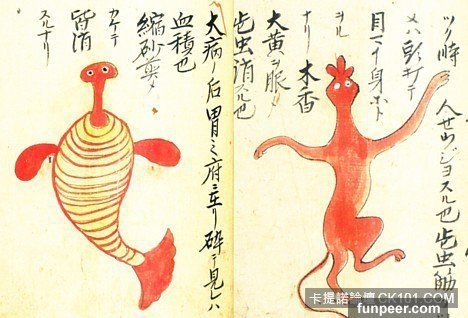 ツク時
人せウジヨスル也此虫動
メハ頭打テ
目ニテ身ホト
ヲル
ナリ 木香
大黄ヲ服ノ
此虫消スル也
大病ノ后胃之府ニ在リ砕テ見レハ
血積也
縮砂
カケテ
皆消
スルナリ
卡提諾論壇 CK101.COM
funpeer.com